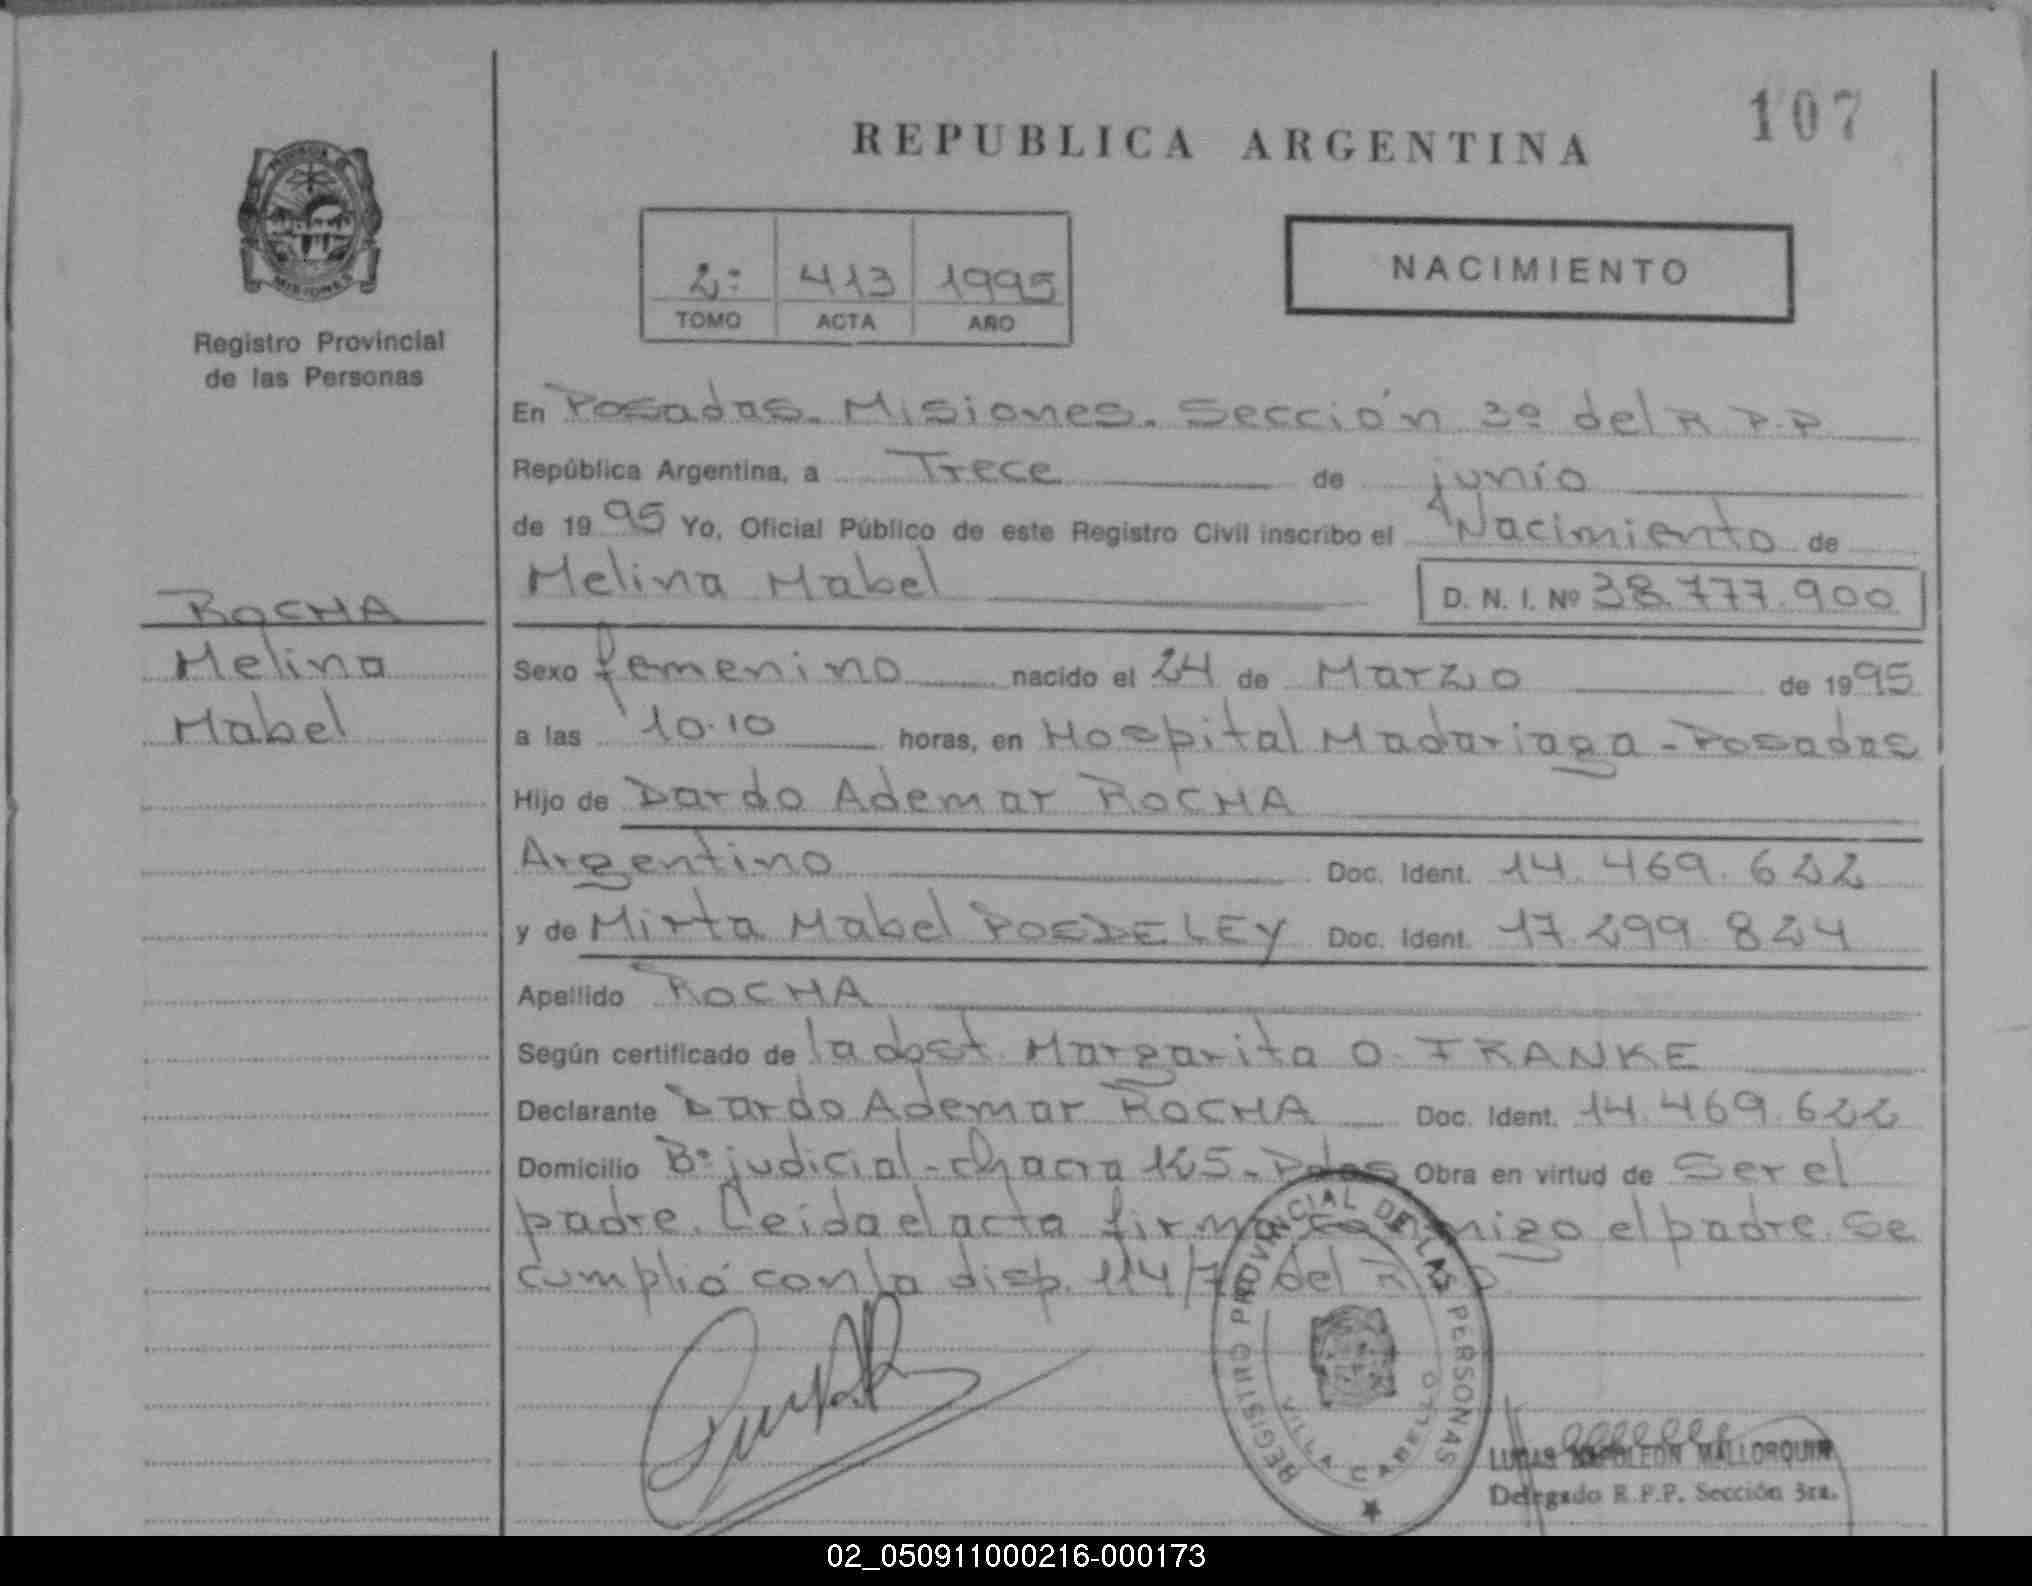 107
REPUBLICA ARGENTINA
2º 413 1995
TOMO ACTA AÑO
NACIMIENTO
Registro Provincial
de las Personas
En Posadas. Misiones. Sección 3º del R P.P
República Argentina, a Trece de junio
de 1995 Yo, Oficial Público de este Registro Civil inscribo el Nacimiento de
Melina Mabel D. N. I. Nº 38.777.900
ROCHA
Melina
Mabel
Sexo femenino nacido el 24 de Marzo de 1995
a las 10.10 horas, en Hospital Madariaga - Posadas
Hijo de Dardo Ademar ROCHA
Argentino Doc. Ident. 14.469.622
y de Mirta Mabel POEDELEY Doc. Ident. 17.299.824
Apellido ROCHA
Según certificado de la obst. Margarita O. FRANKE
Declarante Dardo Ademar ROCHA Doc. Ident. 14.469.622
Domicilio Bº judicial - chacra 125 - Pdas Obra en virtud de Ser el
padre. Leída el acta firma conmigo el padre. Se
cumplió con la disp. 114/ del R
REGISTRO PROVINCIAL DE LAS PERSONAS
VILLA CABELLO
LUCAS NAPOLEON MALLORQUIN
Delegado R.P.P. Sección 3ra.
02_050911000216-000173